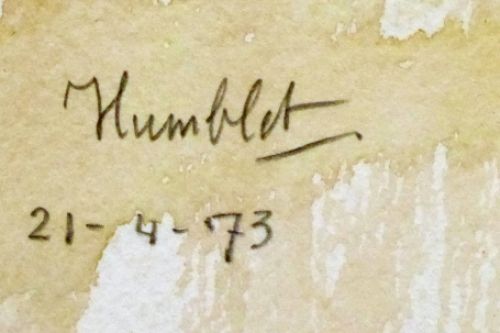 Humblet
21-4-73